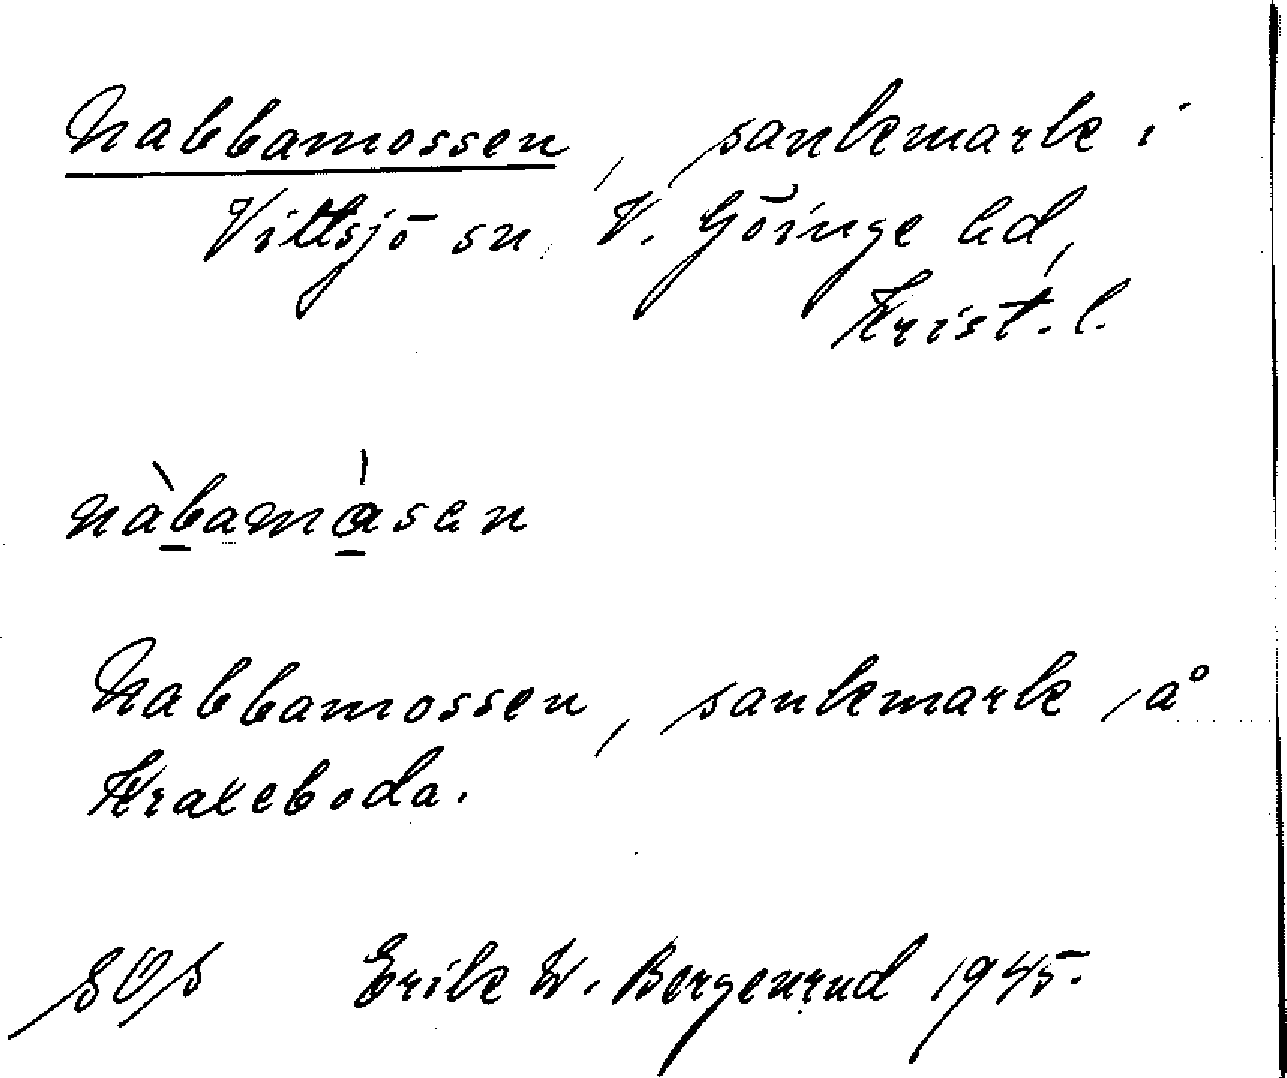 Nabbamossen, sankmark i
Vittsjö sn, V. Göinge hd,
Krist. l.
nàbamåsen
Nabbamossen, sankmark, å
Krakeboda.
Erik W. Bergenrud 1945.